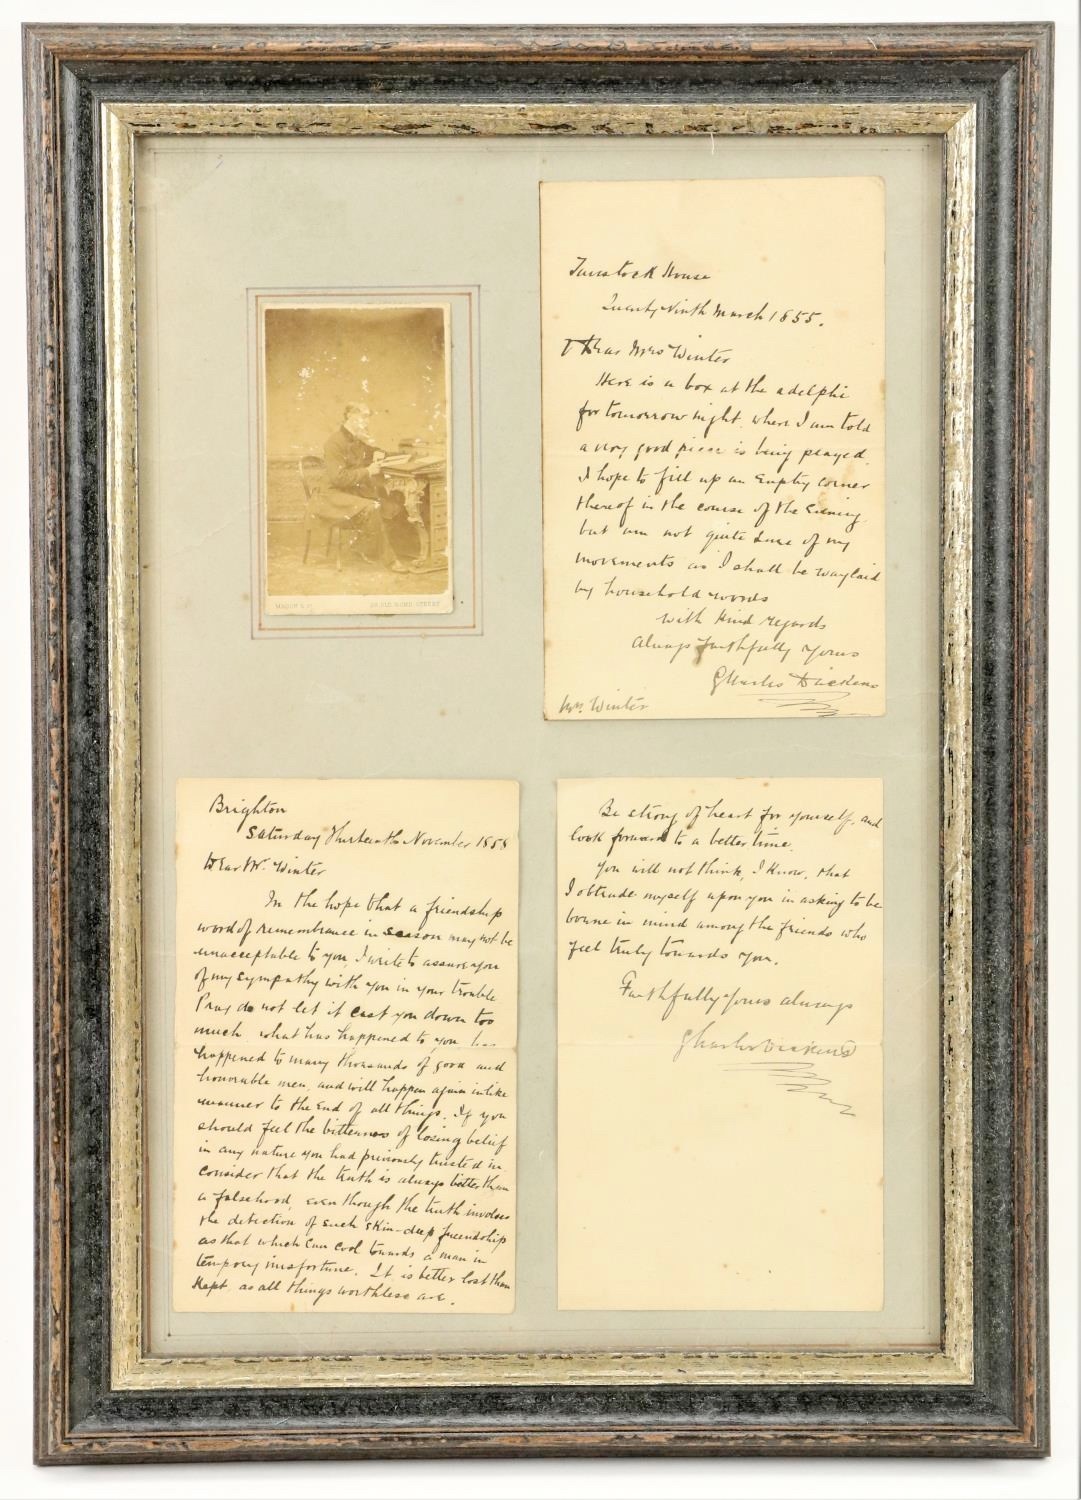 Tavistock House
Twenty Ninth March 1855.
Dear Mrs Winter
Here is a box at the adelphi
for tomorrow night, where I am told
a very good piece is being played.
I hope to fill up an Empty corner
thereof in the course of the Evening.
but am not quite Sure of my
movements as I shall be waylaid
by household words
with kind regards
always faithfully yours
Charles Dickens
Mrs. Winter
MASON & Co
OLD BOND STREET
Brighton
Saturday Thirteenth November 1858
Dear Mr. Winter
In the hope that a friendship
word of remembrance in season may not be
unacceptable to you I write to assure you
of my sympathy with you in your trouble
Pray do not let it cast you down too
much. what has happened to you has
happened to many thousands of good and
honorable men, and will happen again in like
manner to the End of all things. If you
should feel the bitterness of losing belief
in any nature you had previously trusted in.
consider that the truth is always better than
a falsehood, even though the truth involves
the detection of such skin-deep friendship
as that which can cool towards a man in
tempory misfortune. It is better lost than
kept, as all things worthless are.
Be strong of heart for yourself, and
look forward to a better time.
you will not think, I know, that
I obtrude myself upon you in asking to be
bourne in mind among the friends who
feel truly towards you.
Faithfully yours always
Charles Dickens